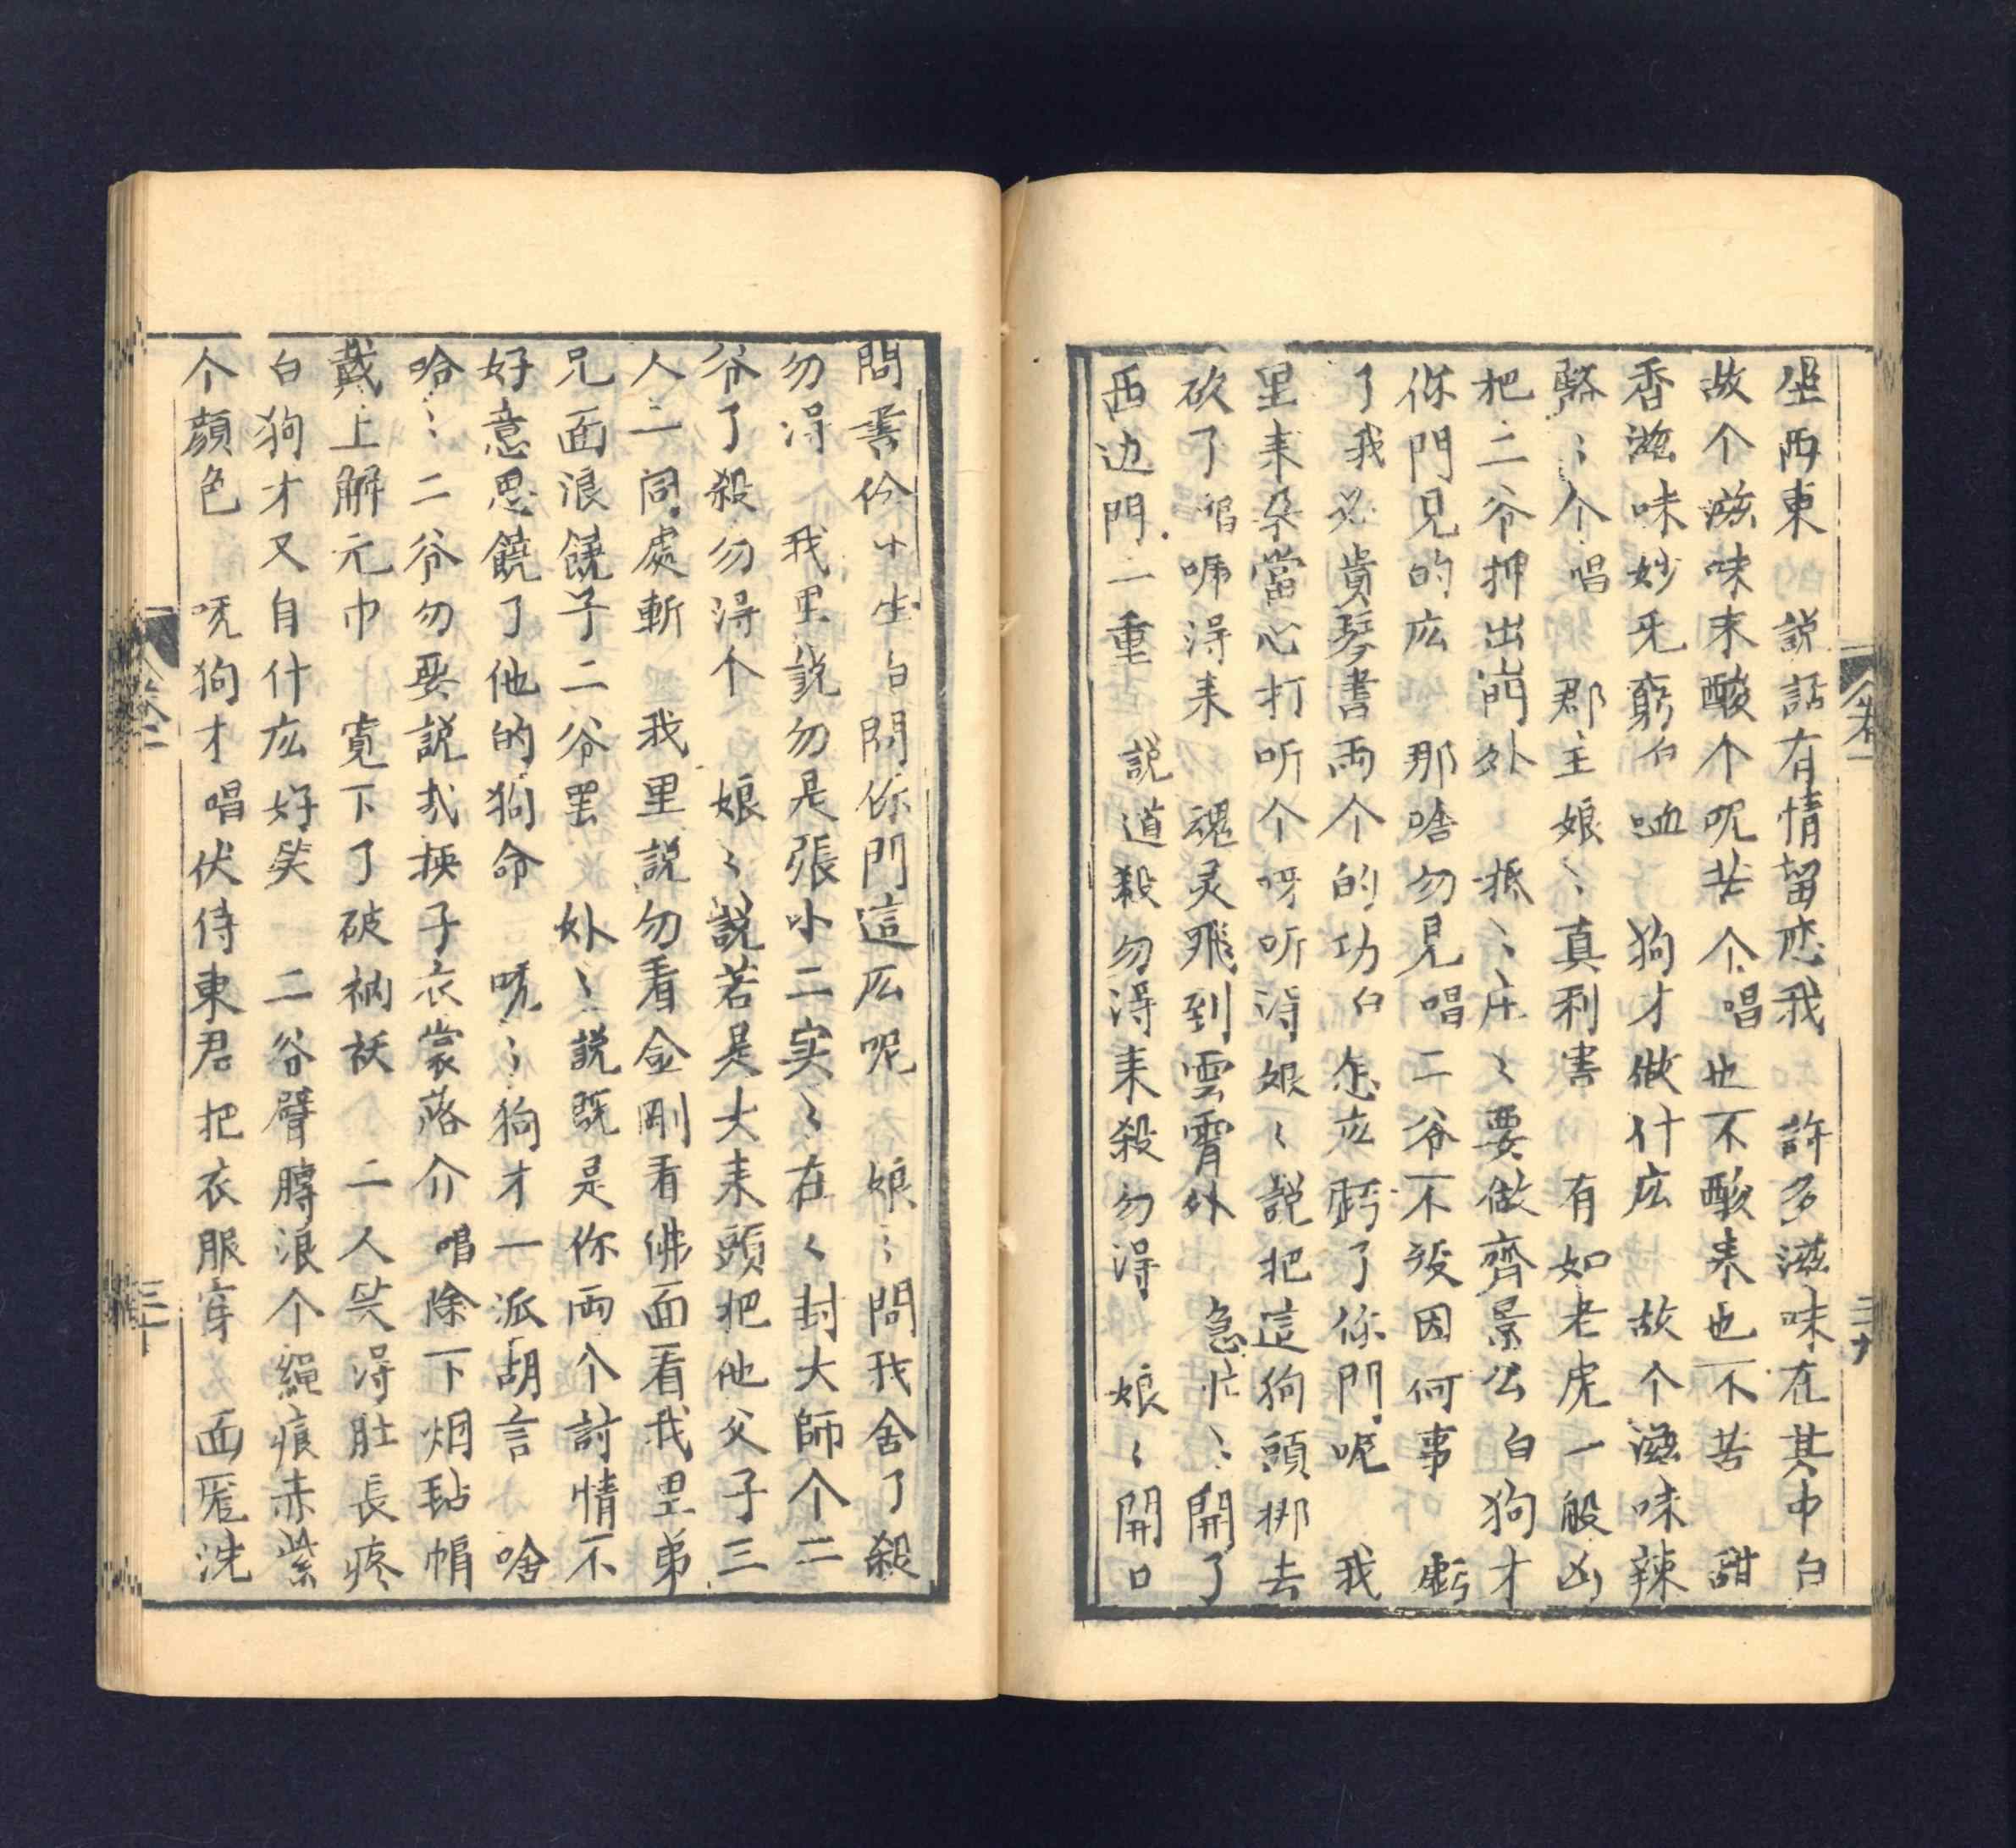 坐西東 説話有情留恋我 許多滋味在其中白
故个滋味末酸个呢苦个唱也不酸来也不苦 甜
香滋味妙无窮白 狗才做什庅 故个滋味辣
个唱 郡主娘〻真利害 有如老虎一般凶
把二爷押出崗門外 抵〻庄〻要做齊景公白狗才
你門見的庅 那啥勿見唱二爷不設因何事 虧
了我必貴琴書両个的功白怎庅虧了你門呢 我
里耒朶當心打听个呀听淂娘〻説把這狗頭挷去
砍了唱 淂耒 魂灵飛到雲霄外 急忙〻開了
西边門二重 説道殺勿淂耒殺勿淂 娘〻開口
問書 白問你門這庅呢 娘〻問我舍了殺
勿淂 我里説勿是張小二实〻在〻封大師个二
爷了殺勿淂个 娘〻説若是大耒頭把他父子三
人二同處斬 我里説勿看金剛看佛面看我里弟
兄面浪饒子二爷罢 外〻説既是你両个討情不
好意思饒了他的狗命 唬〻狗才一派胡言 啥
哈〻二爷勿要説哉换子衣裳落介唱除下烟毡帽
戴上解元巾 寬下了破衲袄 二人笑淂肚長疼
白狗才又自什庅好笑 二爷臂膊浪个繩痕赤紫
个顔色 呒狗才唱伏侍東君把衣服穿 面 洗
卷二
三十